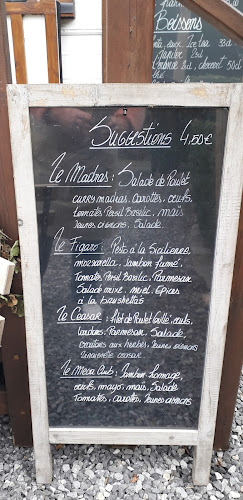 Boissons
Ice tea
Jupiler
chocolat 50cl
Suggestions 4,50€
Le Madras : Salade de Poulet
curry madras, Carottes, œufs,
tomates Persil Basilic, maïs
Jeunes oignons, Salade
Le Figaro : Pesto à la Sicilienne,
mozzarella, Jambon fumé,
Tomates Persil Basilic, Parmesan
Salade mixe, miel, Epices
à la bruschetta
Le Ceasar : Filet de Poulet Grillé, œufs,
lardons, Parmesan, Salade
croutons aux herbes, Jeunes oignons
vinaigrette ceasar
Le Mega Club : Jambon, fromage,
œufs, mayo, maïs, Salade
Tomates, carottes, Jeunes oignons